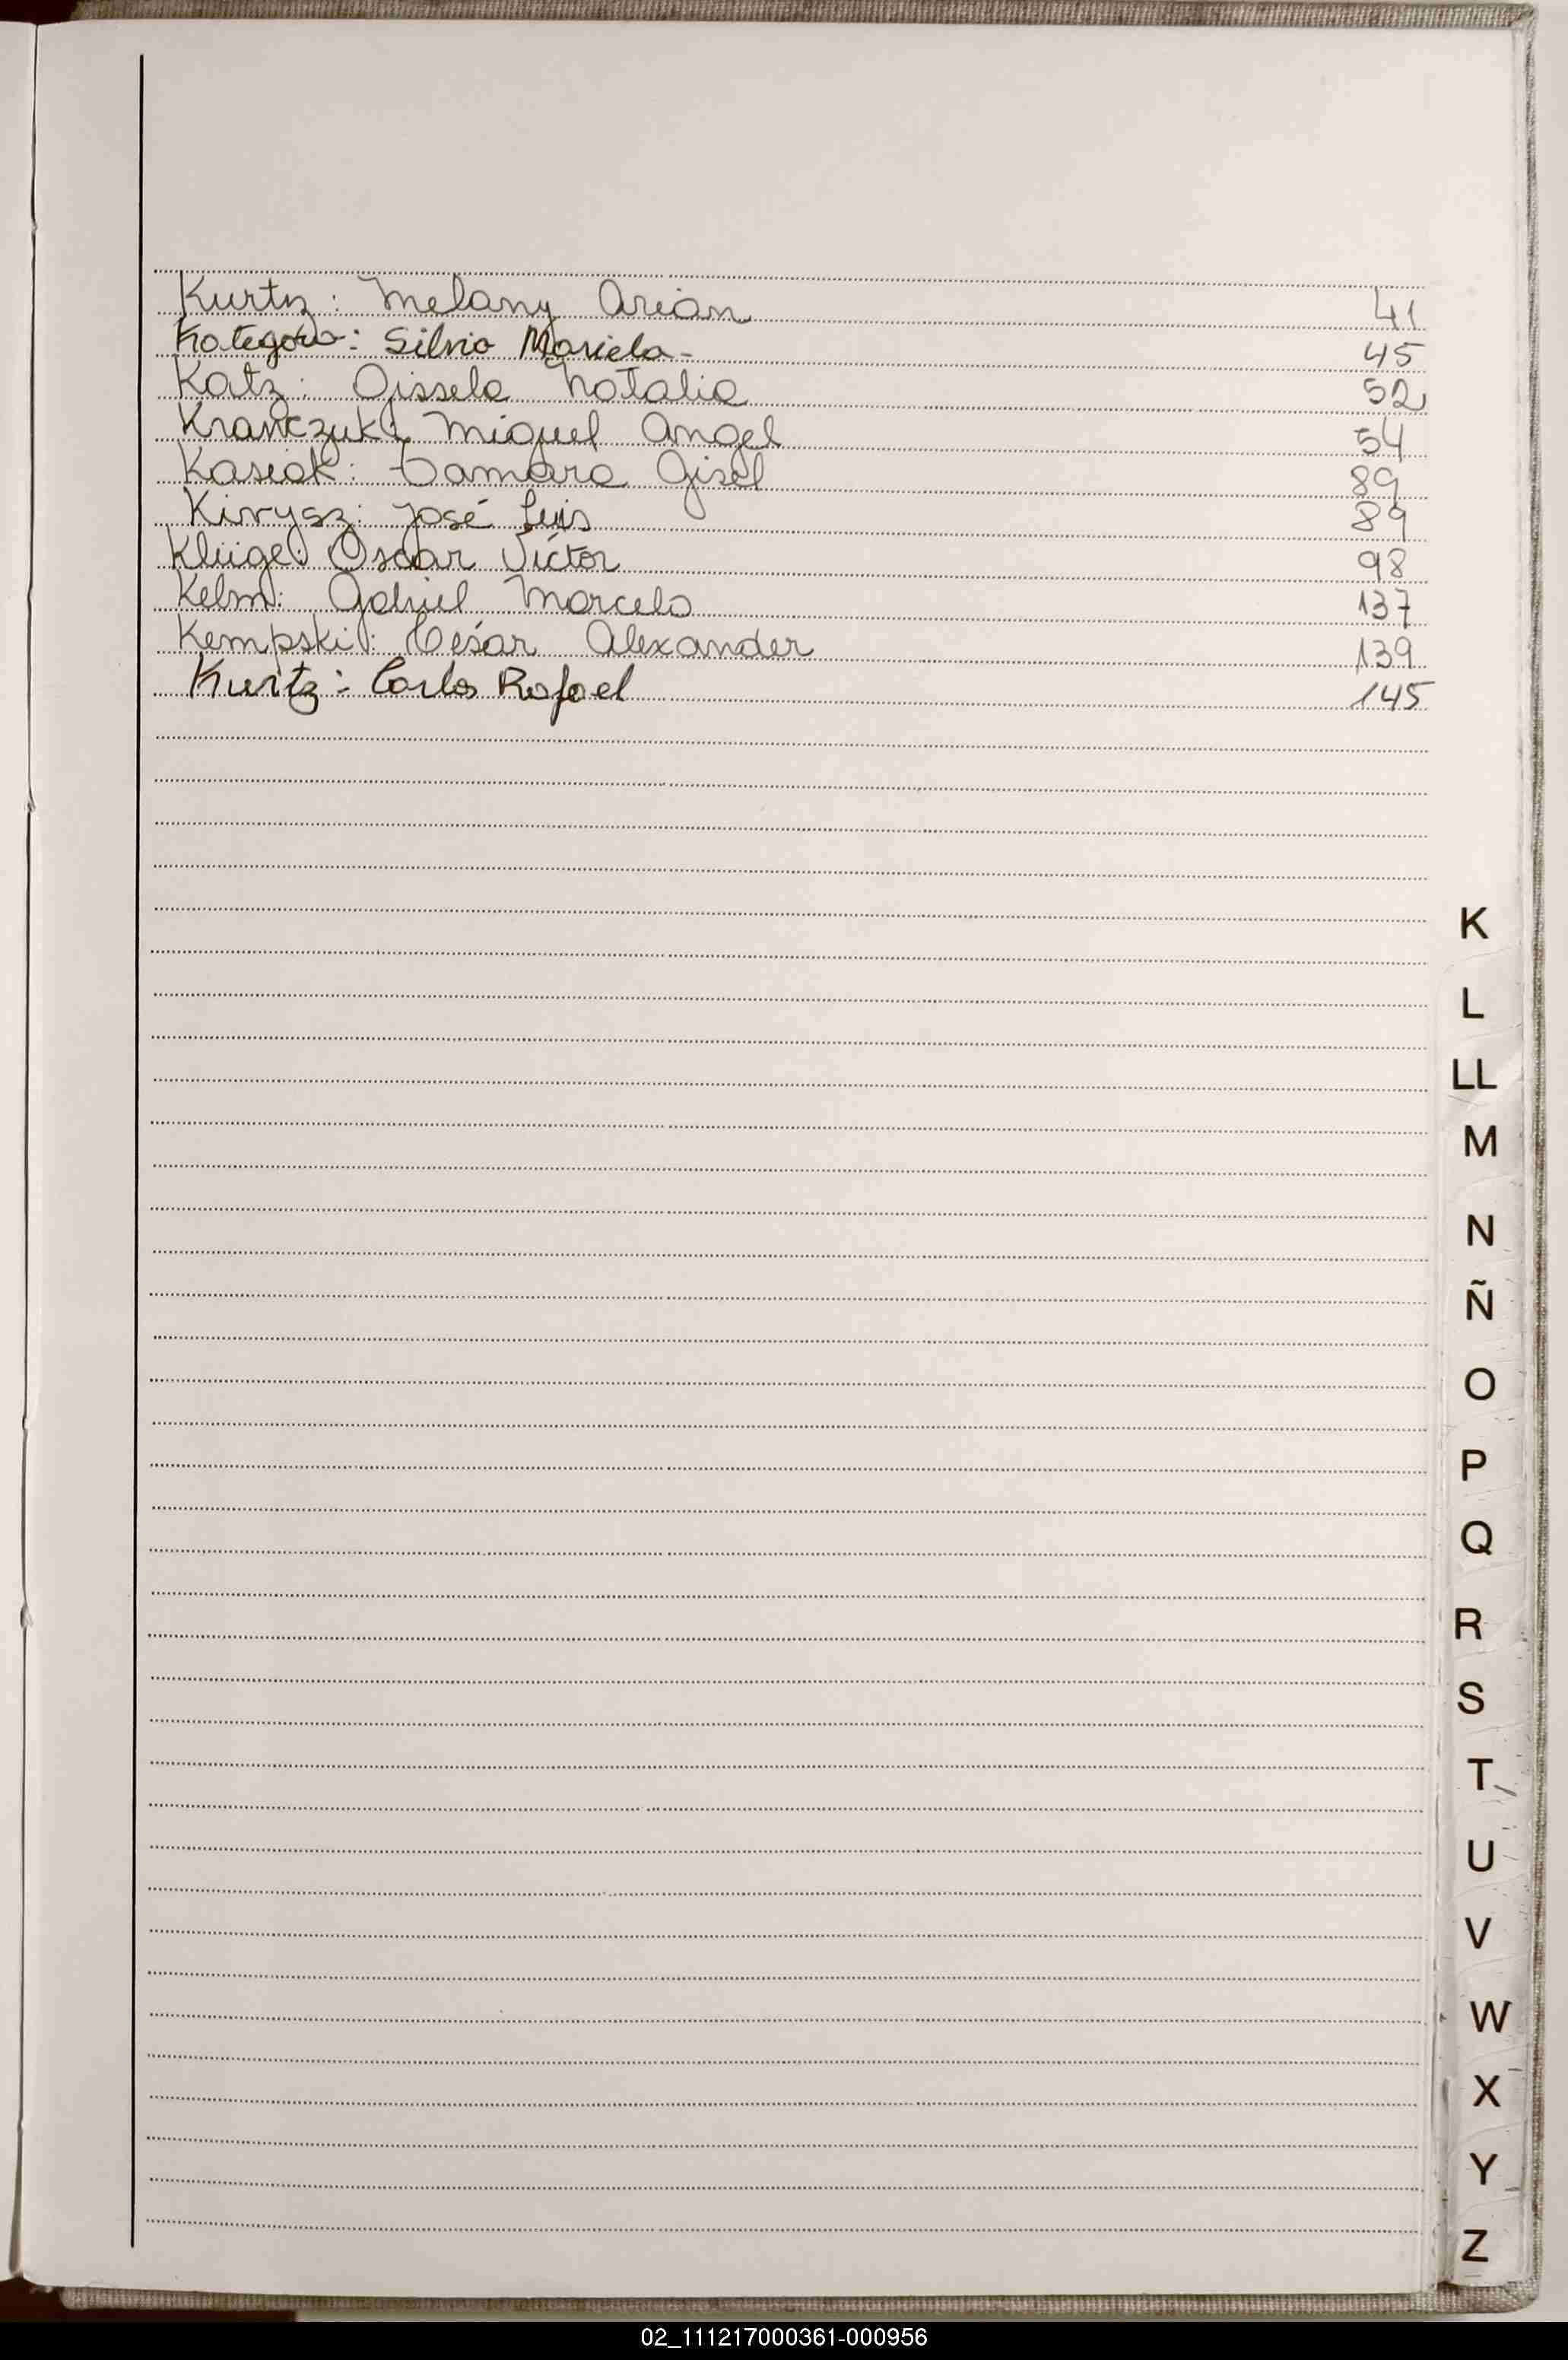 Kurtz: Melany Arian 41
Kategora: Silvia Mariela- 45
Katz: Gissela Natalia 52
Krawczuk: Miguel Angel 54
Kasiak: Tamara Gisel 89
Kirysz: José Luis 89
Klüge: Oscar Víctor 98
Kelm: Gabriel Marcelo 137
Kempski: César Alexander 139
Kurtz: Carlos Rafael 145
K
L
LL
M
N
Ñ
O
P
Q
R
S
T
U
V
W
X
Y
Z
02_111217000361-000956